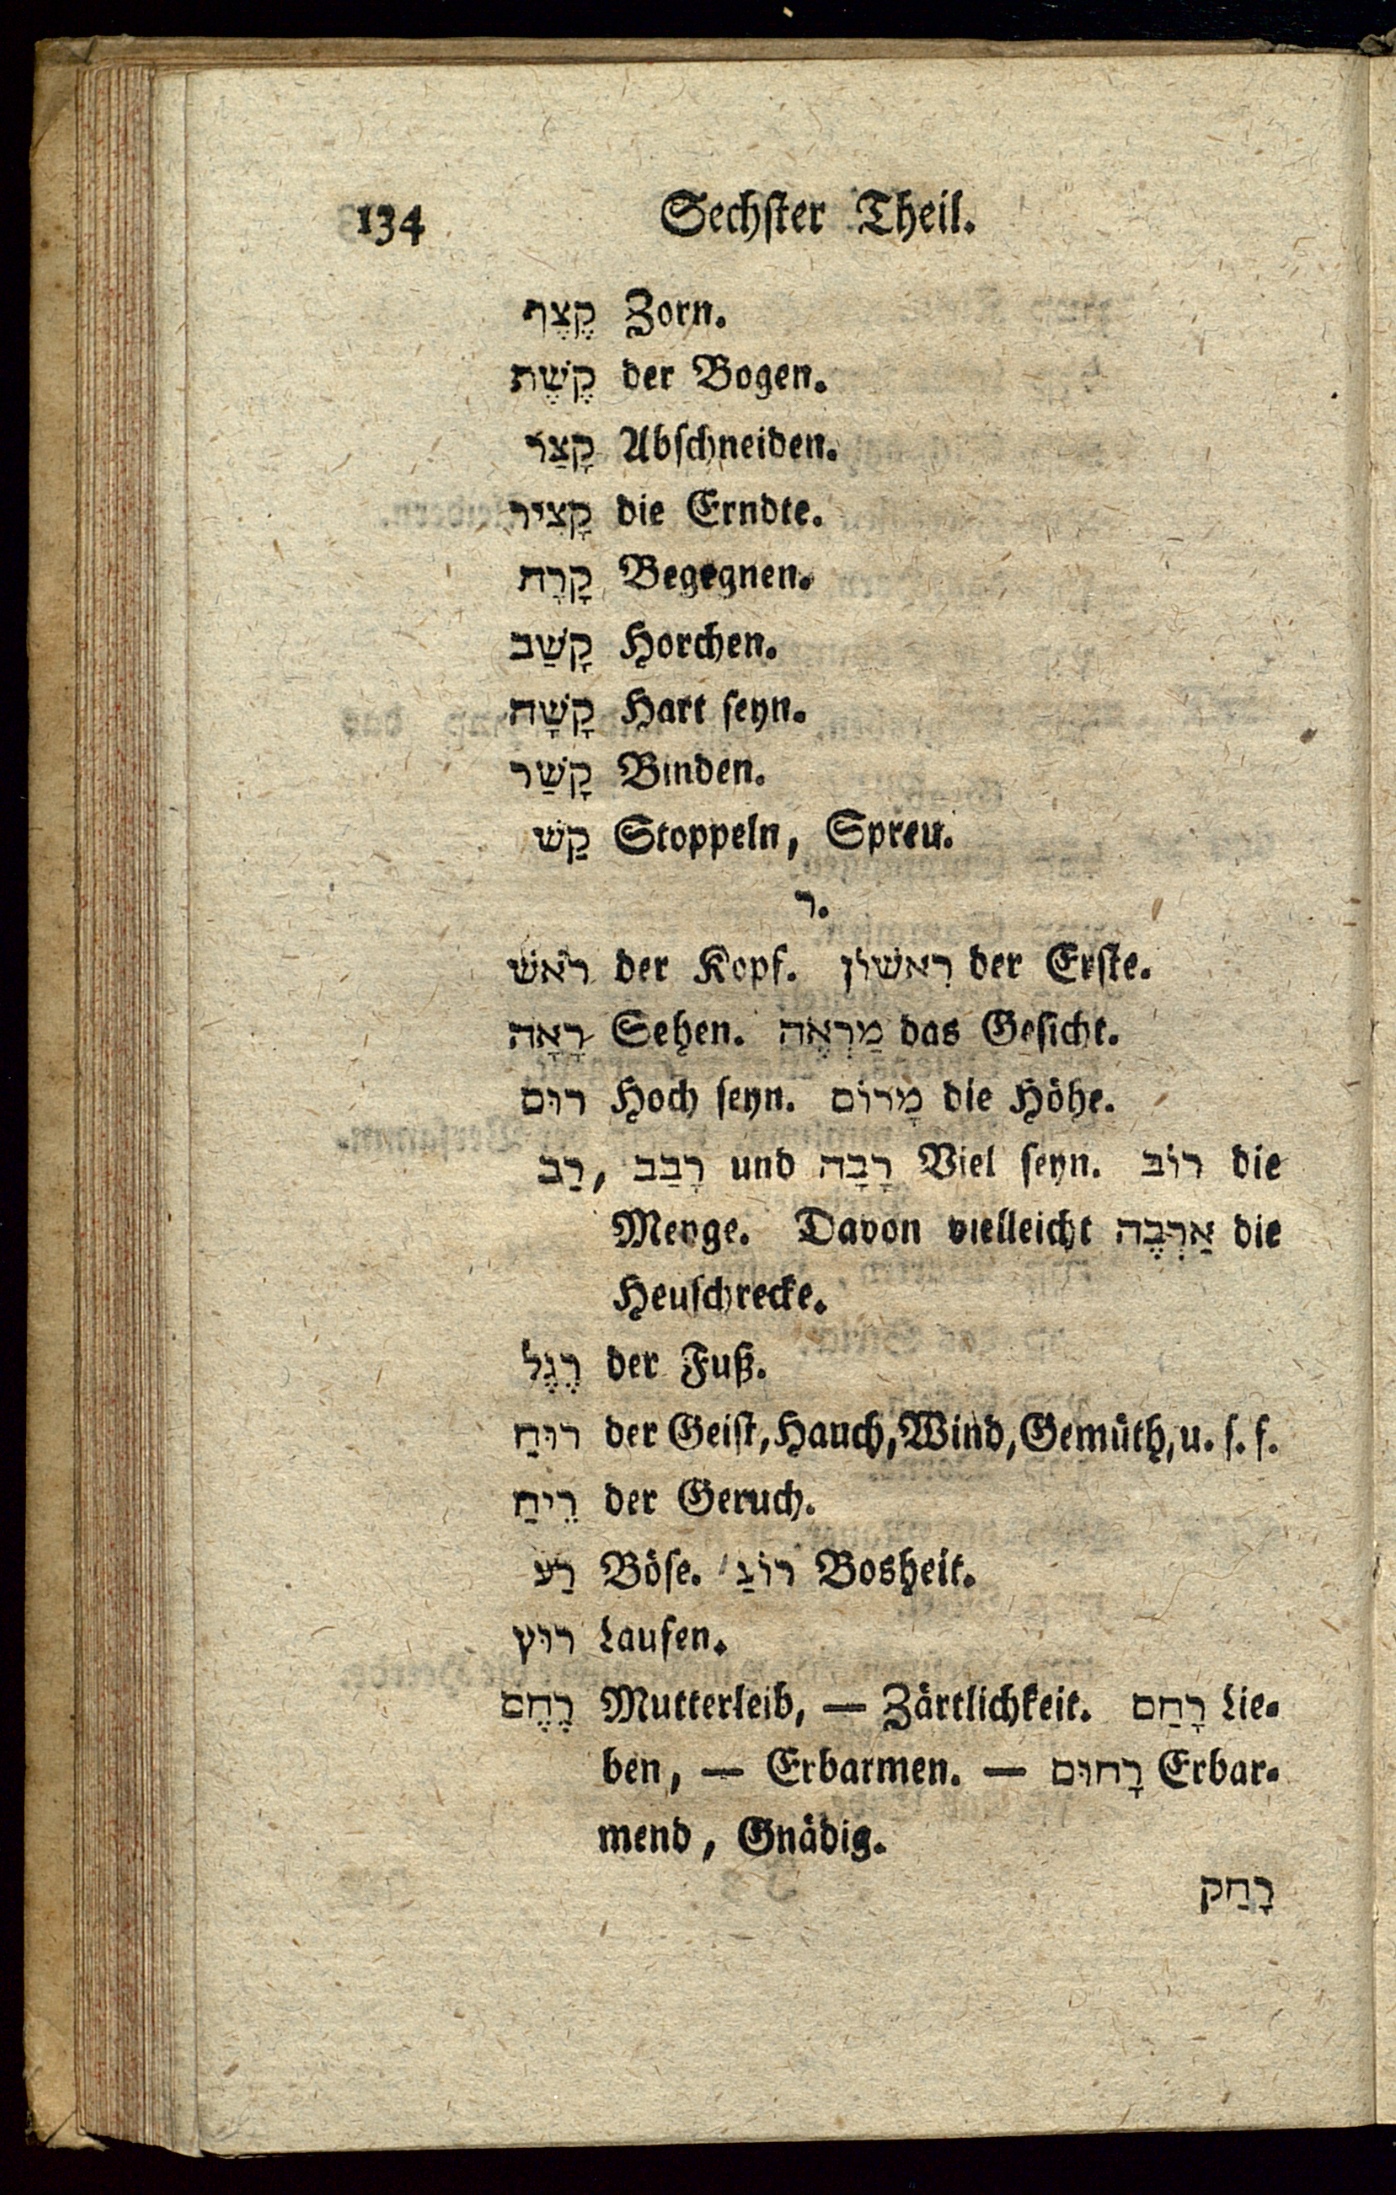 134 Sechster Theil.
קֶצֶף Zorn.
קֶשֶׁת der Bogen.
קָצַר Abschneiden.
קָצִיר die Erndte.
Begegnen.
קָשַׁב Horchen.
קָשָׁה Hart seyn.
קָשַׁר Binden.
קַשׁ Stoppeln, Spreu.
ר.
רֹאשׁ der Kopf. רִאשׁוֹן der Erste.
רָאָה Sehen. מַרְאֶה das Gesicht.
רוּם Hoch seyn. מָרוֹם die Höhe.
רַב, רָבַב und רָבָה Viel seyn. רוֹב die
Menge. Davon vielleicht אַרְבֶּה die
Heuschrecke.
רֶגֶל der Fuß.
רוּחַ der Geist, Hauch, Wind, Gemüth, u. s. f.
רֵיחַ der Geruch.
רַע Böse. רוֹעַ Bosheit.
רוּץ Laufen.
רֶחֶם Mutterleib, — Zärtlichkeit. רָחַם Lie-
ben, — Erbarmen. — רָחוּם Erbar-
mend, Gnädig.
רָחַק